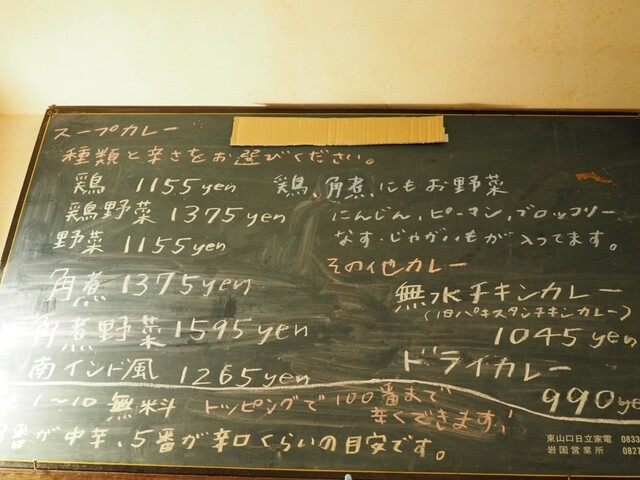 スープカレー
種類と辛さをお選びください。
鶏 1155yen
鶏野菜 1375yen
野菜 1155yen
角煮 1375yen
角煮野菜 1595yen
南インド風 1265yen
鶏、角煮にもお野菜
にんじん、ピーマン、ブロッコリー
なす・じゃがいもが入ってます。
その他カレー
無水チキンカレー
(旧パキスタンチキンカレー)
1045yen
ドライカレー
990ye
1~10 無料 トッピングで100番まで
辛くできます!
番が中辛、5番が辛口くらいの目安です。
東山口日立家電 0833
岩国営業所 0827